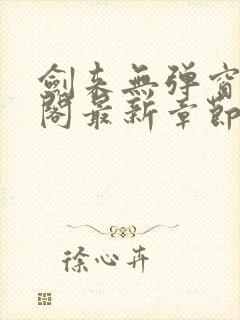 劍来無弹窗
閣最新章節
徐心卉